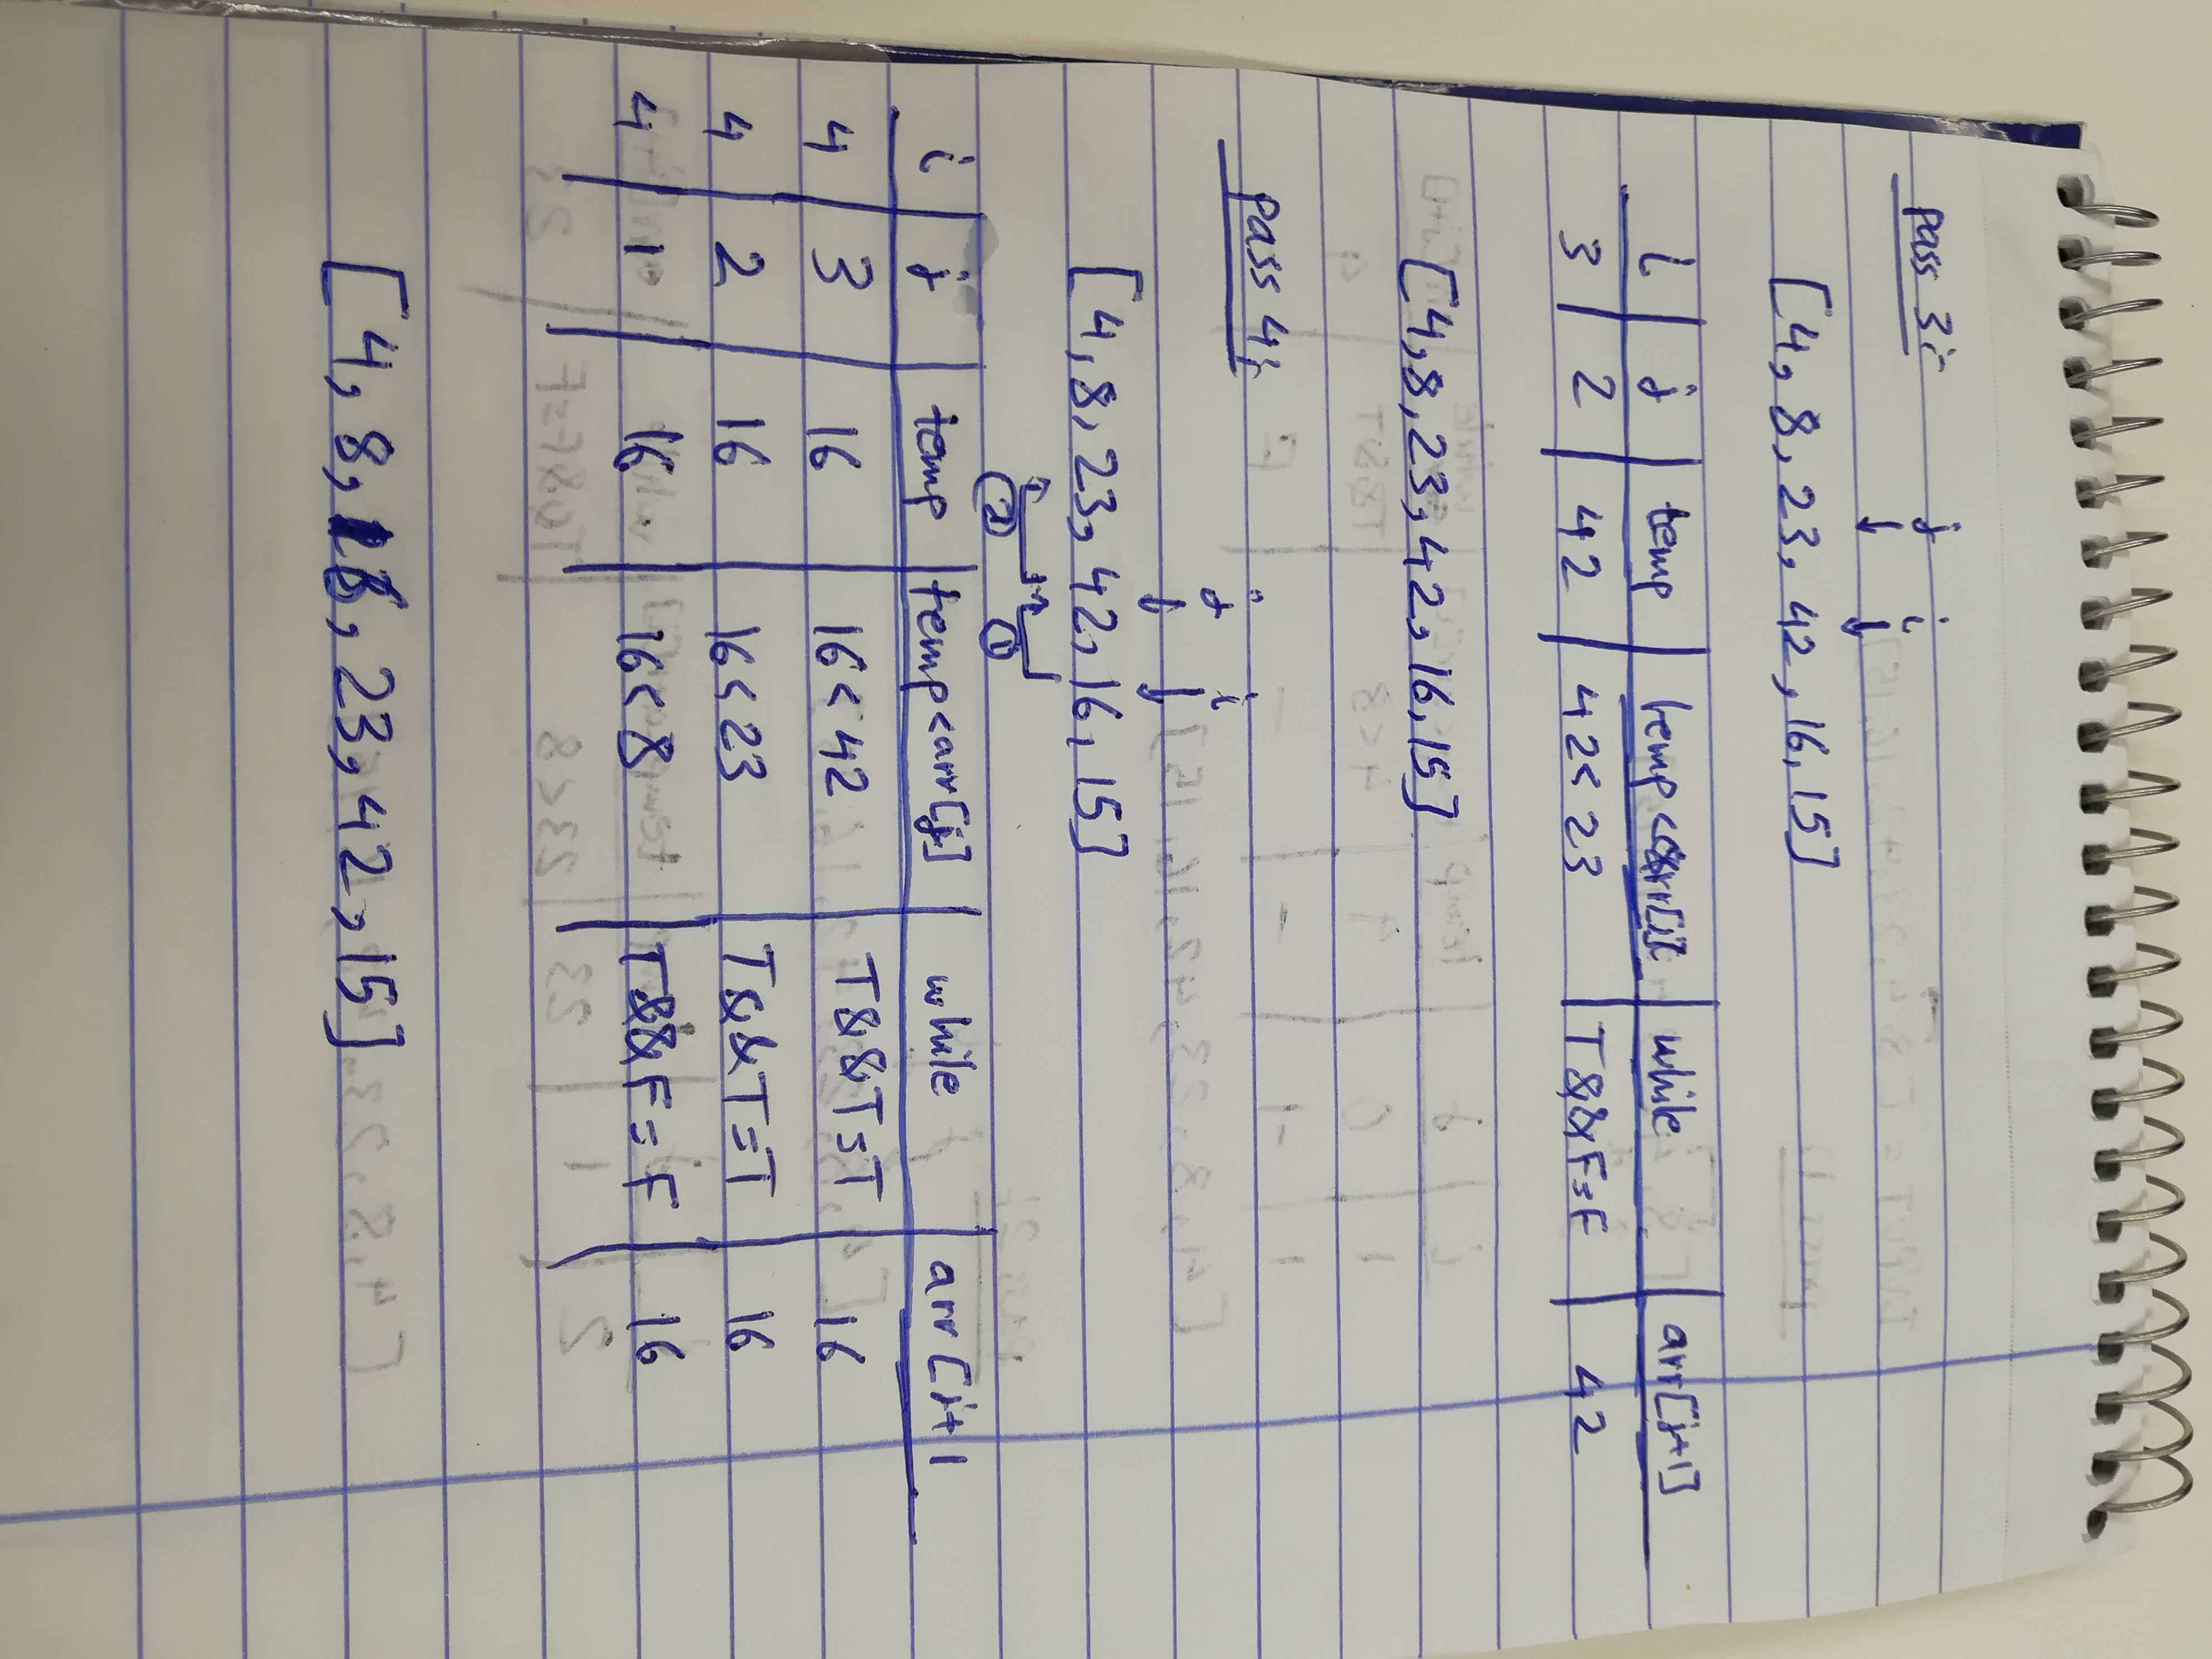 pass 3:-
j i
[4, 8, 23, 42, 16, 15]
i j temp temp < arr[j] while arr[j+1]
3 2 42 42 < 23 T && F = F 42
[4, 8, 23, 42, 16, 15]
pass 4:
j i
[4, 8, 23, 42, 16, 15]
2 1
i j temp temp < arr[j] while arr [j+1
4 3 16 16 < 42 T && T = T 16
4 2 16 16 < 23 T && T = T 16
4 1 16 16 < 8 T && F = F 16
[4, 8, 16, 23, 42, 15]